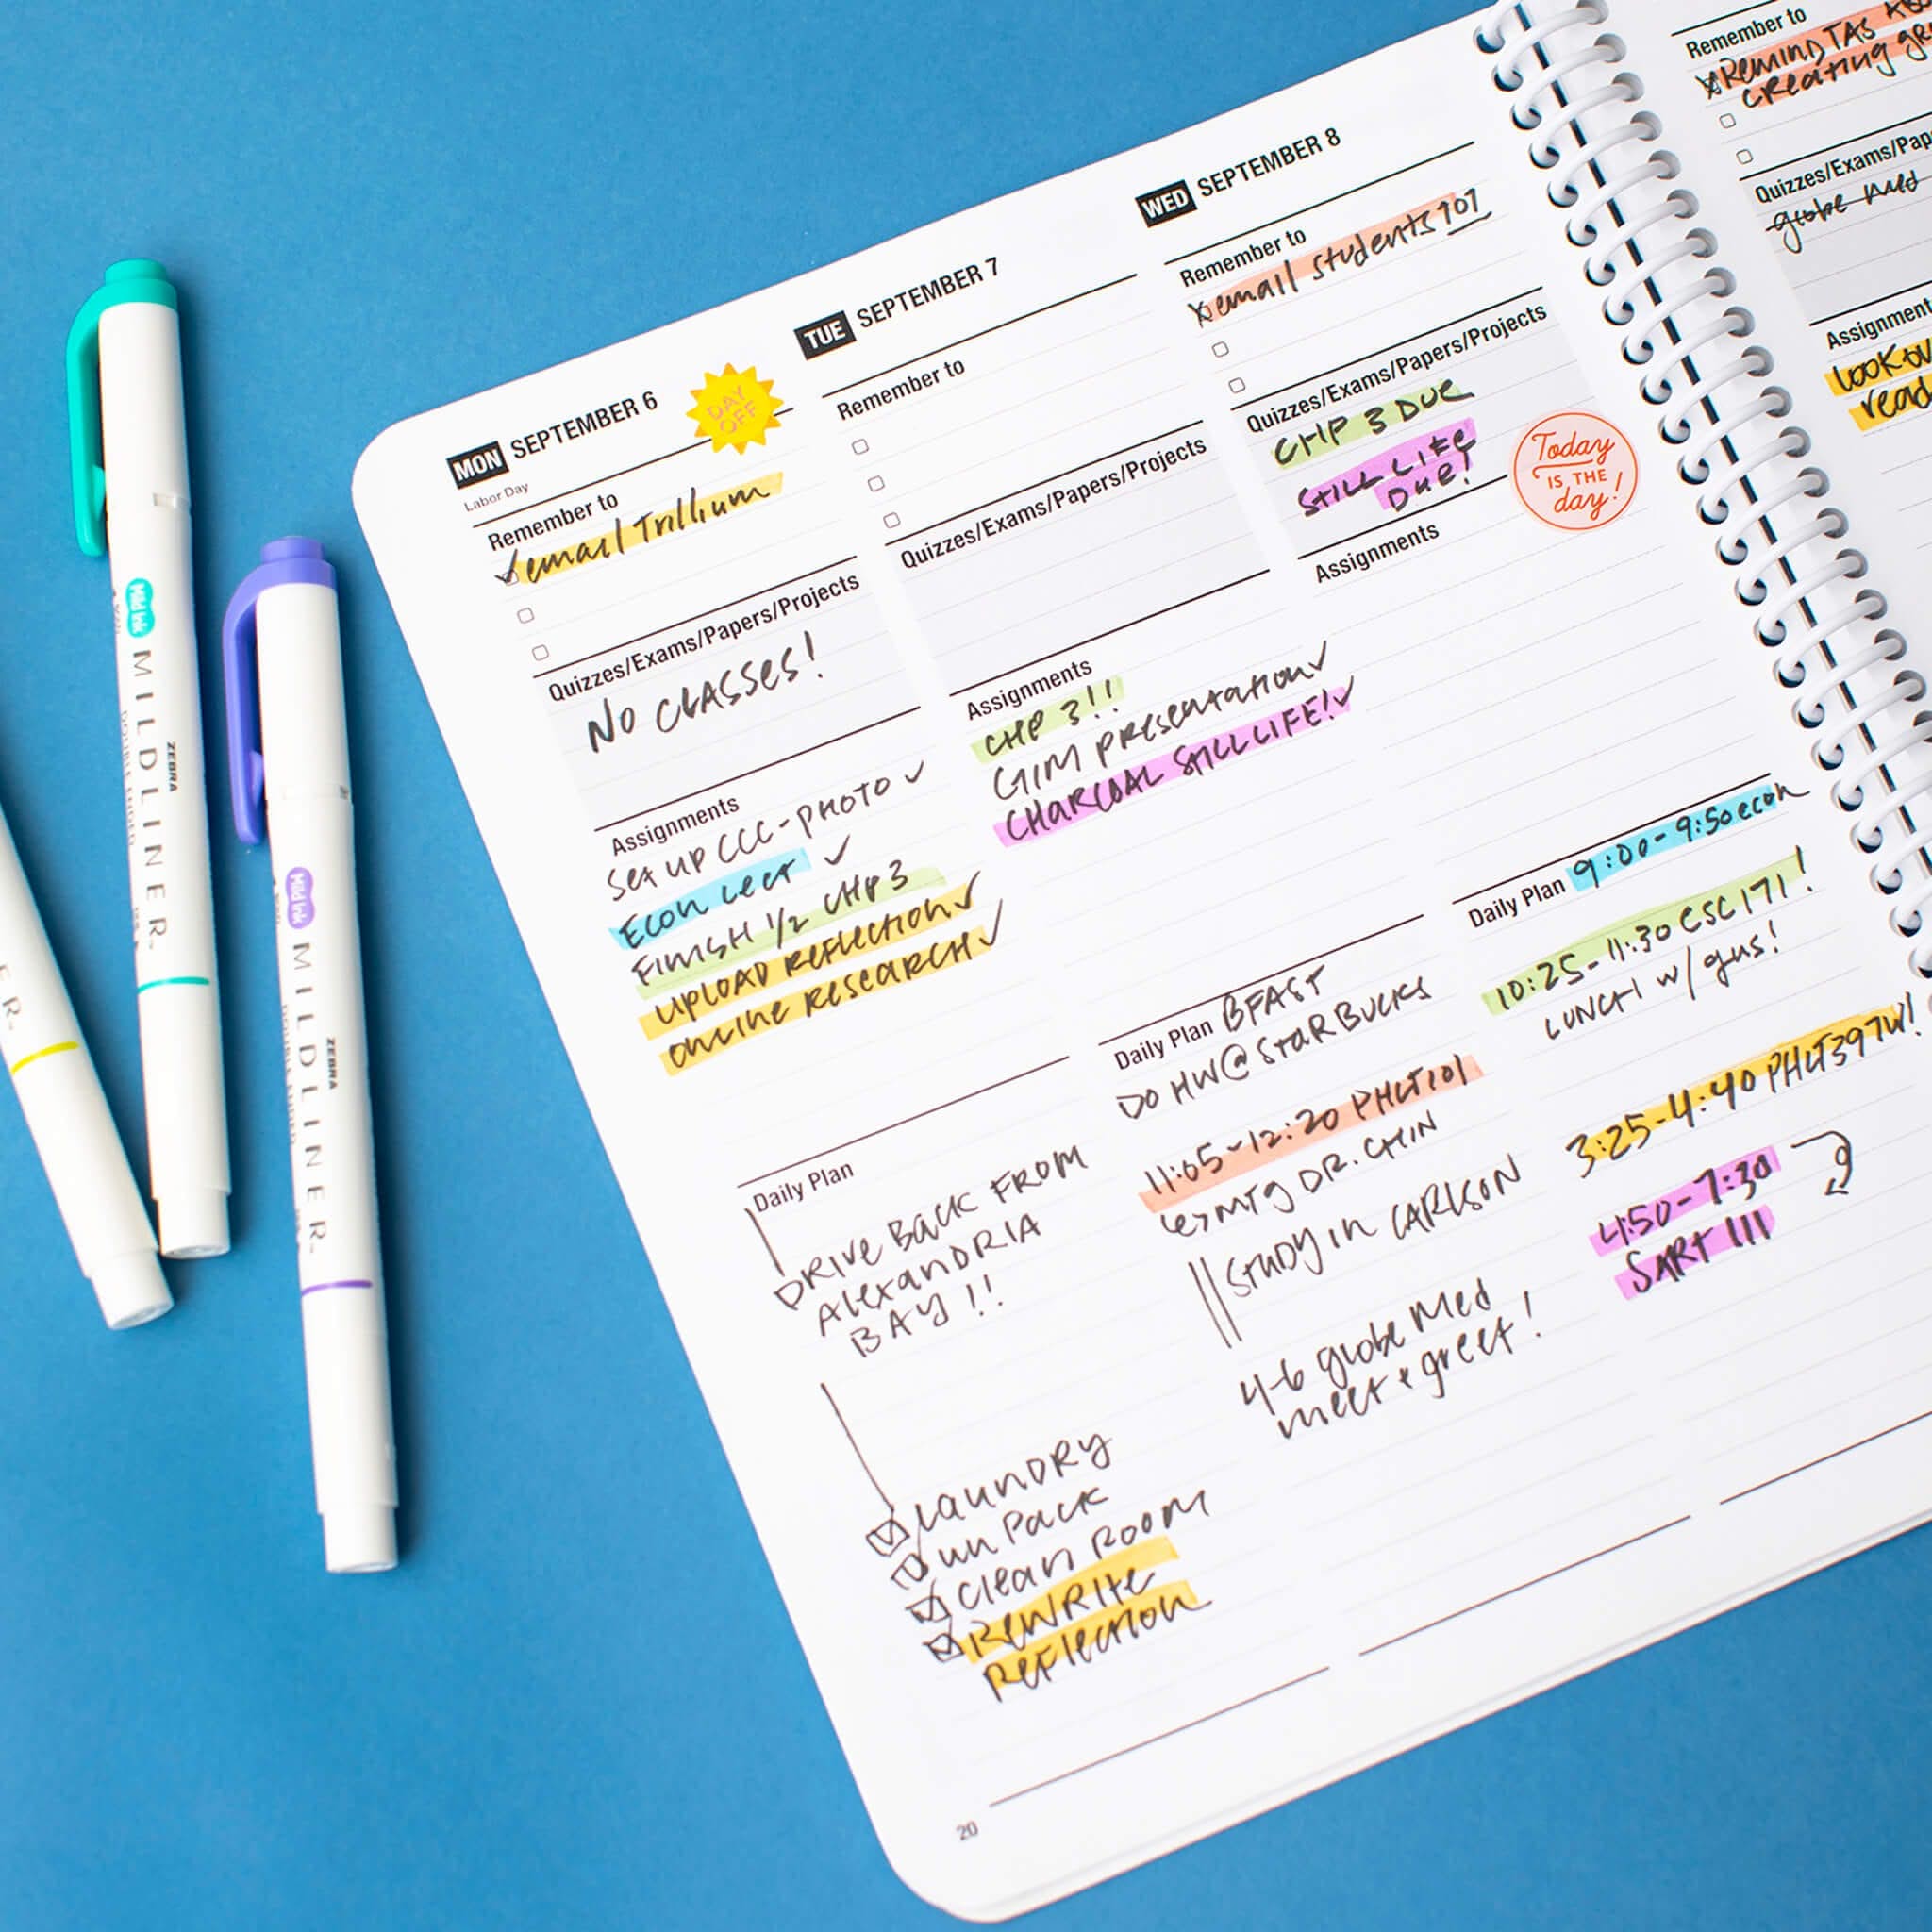 MON SEPTEMBER 6
Labor Day
DAY
OFF
Remember to
email Trillium
Quizzes/Exams/Papers/Projects
NO CLASSES!
Assignments
SET UP CCC-PHOTO ✓
ECON LECT ✓
FINISH 1/2 CHP 3
UPLOAD REFLECTION ✓
ONLINE RESEARCH ✓
Daily Plan
DRIVE BACK FROM
ALEXANDRIA
BAY!!
LAUNDRY
UNPACK
CLEAN ROOM
REWRITE
REFLECTION
20
TUE SEPTEMBER 7
Remember to
Quizzes/Exams/Papers/Projects
Assignments
CHP 3!!
GIM PRESENTATION ✓
CHARCOAL STILL LIFE! ✓
Daily Plan BFAST
DO HW@STARBUCKS
11:05-12:20 PHLT101
↳ MTG DR. CHIN
STUDY IN CARLSON
4-6 globe Med
meet + greet!
WED SEPTEMBER 8
Remember to
email students 101
Quizzes/Exams/Papers/Projects
CHP 3 DUE
STILL LIFE
DUE!
Today
IS THE
day!
Assignments
Daily Plan 9:00-9:50 econ
10:25-11:30 CSC171!
LUNCH w/ gus!
3:25-4:40 PHLT397W!
4:50-7:30
SART 111
Remember to
REMIND TAS
creating
Quizzes/Exams/Pap
globe Med
Assignment
read
Mild Ink
MILDLINER™
ZEBRA
Mild Ink
MILDLINER™
ZEBRA
ER™